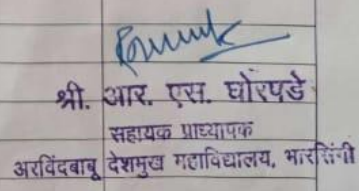 श्री. आर. एस. घोरपडे
सहायक प्राध्यापक
अरविंदबाबू देशमुख महाविद्यालय, भारसिंगी